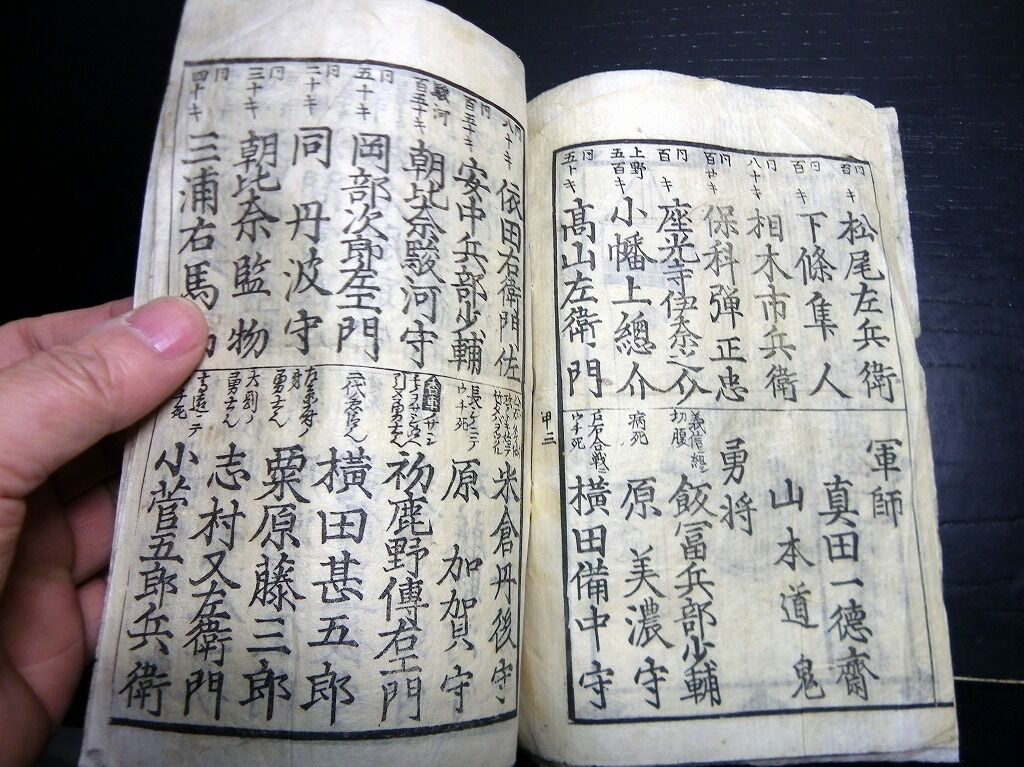 円 百キ 松尾左兵衛
円 百キ 下條隼人
円 八十キ 相木市兵衛
円 百廿キ 保科弾正忠
円 百キ 座光寺伊奈之介
上野 五百キ 小幡上總介
円 五十キ 高山左衛門
軍師
真田一徳齋
山本道鬼
勇将
義信總 切腹 飯冨兵部少輔
病死 原美濃守
戸石合戦ニウチ死 横田備中守
甲三
円 八十キ 依田右衛門佐
円 百五十キ 安中兵部少輔
駿河 百五十キ 朝比奈駿河守
円 五十キ 岡部次郎左エ門
円 二十キ 同丹波守
円 三十キ 朝比奈監物
円 四十キ 三浦右馬
米倉丹後守
長シノニテウチ死 原加賀守
初鹿野傳右エ門
横田甚五郎
粟原藤三郎
志村又左衛門
小菅五郎兵衛